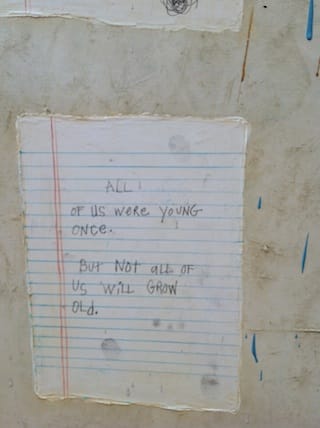 ALL
OF US WERE YOUNG
ONCE.
BUT NOT ALL OF
US WILL GROW
OLd.